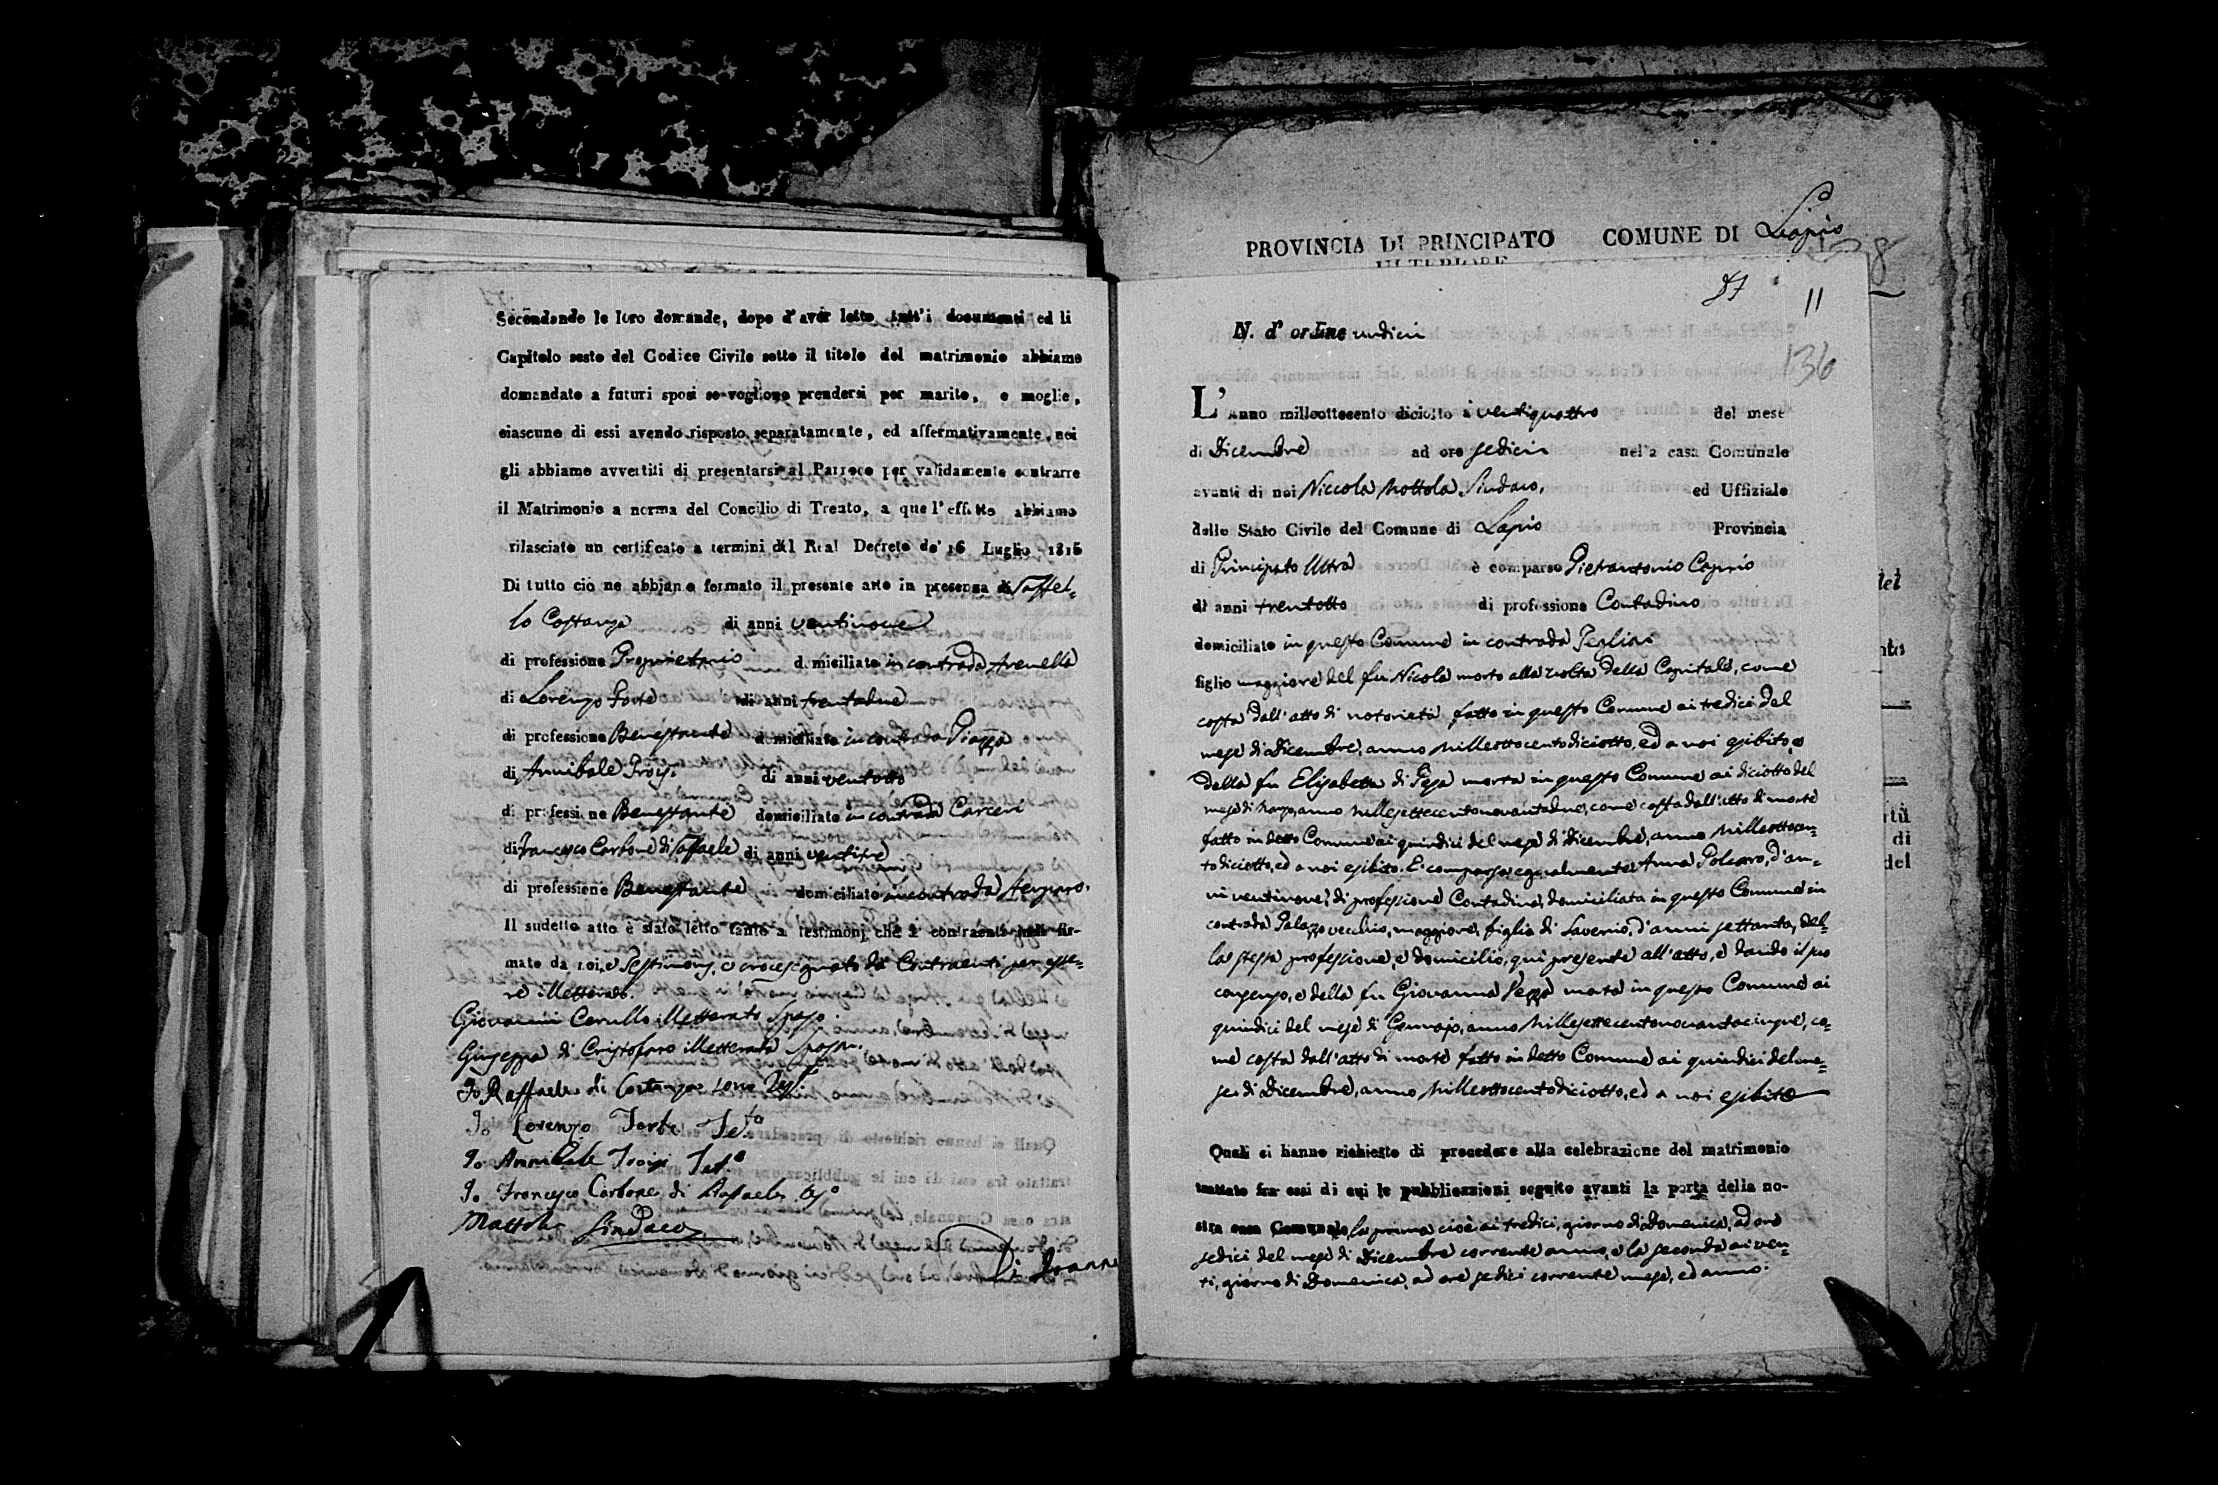 Secondando le loro domande, dopo d'aver letto tutt'i documenti ed li
Capitolo sesto del Codice Civile sotto il titolo del matrimonio abbiamo
domandato a futuri sposi se vogliono prendersi per marito, e moglie,
ciascuno di essi avendo risposto separatamente, ed affermativamente, noi
gli abbiamo avvertiti di presentarsi al Parroco per validamente contrarre
il Matrimonio a norma del Concilio di Trento, a quel'effetto abbiamo
rilasciato un certificato a termini del Real Decreto de' 16 Luglio 1815
Di tutto ciò ne abbiamo formato il presente atto in presenza di Raffael-
lo Costanza di anni ventinove
di professione Proprietario domiciliato in contrada Arenella
di Lorenzo Forte di anni trentadue
di professione Benestante domiciliato in contrada Piazza
di Annibale Troisi di anni ventotto
di professione Benestante domiciliato in contrada Carceri
di Francesco Carbone di Raffaele di anni ventitre
di professione Benestante domiciliato in contrada
Il sudetto atto è stato letto tanto a testimonj che a' contraenti indi fir-
mato da noi, e Testimonj, e crocesegnato da Contraenti per esse-
re illetterati.
Giovanni Carullo illetterato Sposo.
Giuseppa di Cristofaro illetterata Sposa.
Io Raffaele di Costanzo sono Tes.
Io Lorenzo Forte Te.to
Io Annibale Troisi Tes.o
Io Francesco Carbone di Raffaele tes.o
Mottola Sindaco
Di Joanne
PROVINCIA DI PRINCIPATO COMUNE DI Lapio
ULTERIORE
138
87 11
N. d' ordine undici
136
L' Anno milleottocento diciotto a' ventiquattro del mese
di Dicembre ad ore sedici nella casa Comunale
avanti di noi Niccola Mottola Sindaco, ed Uffiziale
dello Stato Civile del Comune di Lapio Provincia
di Principato Ultra è comparso Pietrantonio Caprio
di anni trentotto di professione Contadino
domiciliato in questo Comune in contrada Pegliaro
figlio maggiore del fu Nicola morto alla volta della Capitale, come
costa dall'atto di notorietà fatto in questo Comune ai tredici del
mese di Dicembre, anno Milleottocentodiciotto, ed a noi esibito, e
della fu Elisabetta di Pesa morta in questo Comune ai diciotto del
mese di Marzo, anno Millesettecentonovantadue, come costa dall'atto di morte
fatto in detto Comune ai quindici del mese di Dicembre, anno Milleottocen-
todiciotto, ed a noi esibito. E' comparsa egualmente Anna Polcaro, d'an-
ni ventinove, di professione Contadina, domiciliata in questo Comune in
contrada Palazzo vecchio, maggiore, figlia di Saverio, d'anni settanta, del-
la stessa professione, e domicilio, qui presente all'atto, e dando il suo
consenso, e della fu Giovanna Pezza morta in questo Comune ai
quindici del mese di Gennajo, anno Millesettecentonovantacinque, co-
me costa dall'atto di morte fatto in detto Comune ai quindici del me-
se di Dicembre, anno Milleottocentodiciotto, ed a noi esibito
Quali ci hanno richiesto di procedere alla celebrazione del matrimonio
trattato fra essi di cui le pubblicazioni seguite avanti la porta della no-
stra casa Comunale, la prima cioè ai tredici, giorno di Domenica, ad ore
sedici del mese di Dicembre corrente anno, e la seconda ai ven-
ti, giorno di Domenica, ad ore sedici corrente mese, ed anno.
del
di
del